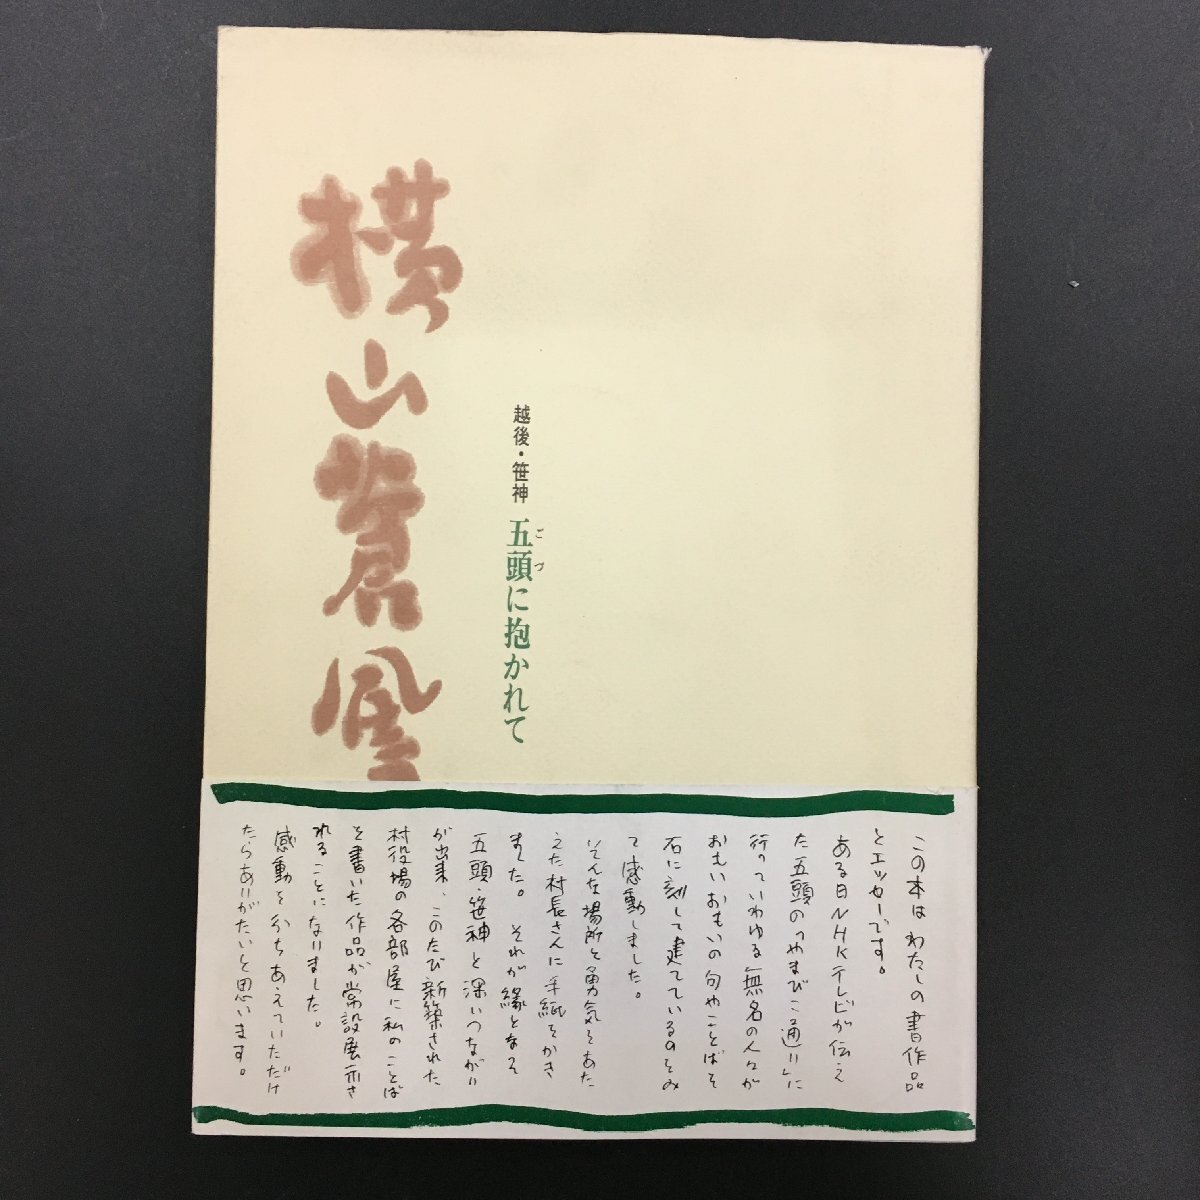 横山蒼鳳
越後・笹神 五頭に抱かれて
ごづ
この本はわたしの書作品
とエッセーです。
ある日NHKテレビが伝え
た五頭の「やまびこ通り」に
行っていわゆる無名の人々が
おもいおもいの句やことばを
石に刻して建てているのをみ
て感動しました。
そんな場所と勇気をあた
えた村長さんに手紙をかき
ました。それが縁となって
五頭・笹神と深いつながり
が出来、このたび新築された
村役場の各部屋に私のことば
を書いた作品が常設展示さ
れることになりました。
感動を分ちあえていただけ
たらありがたいと思います。